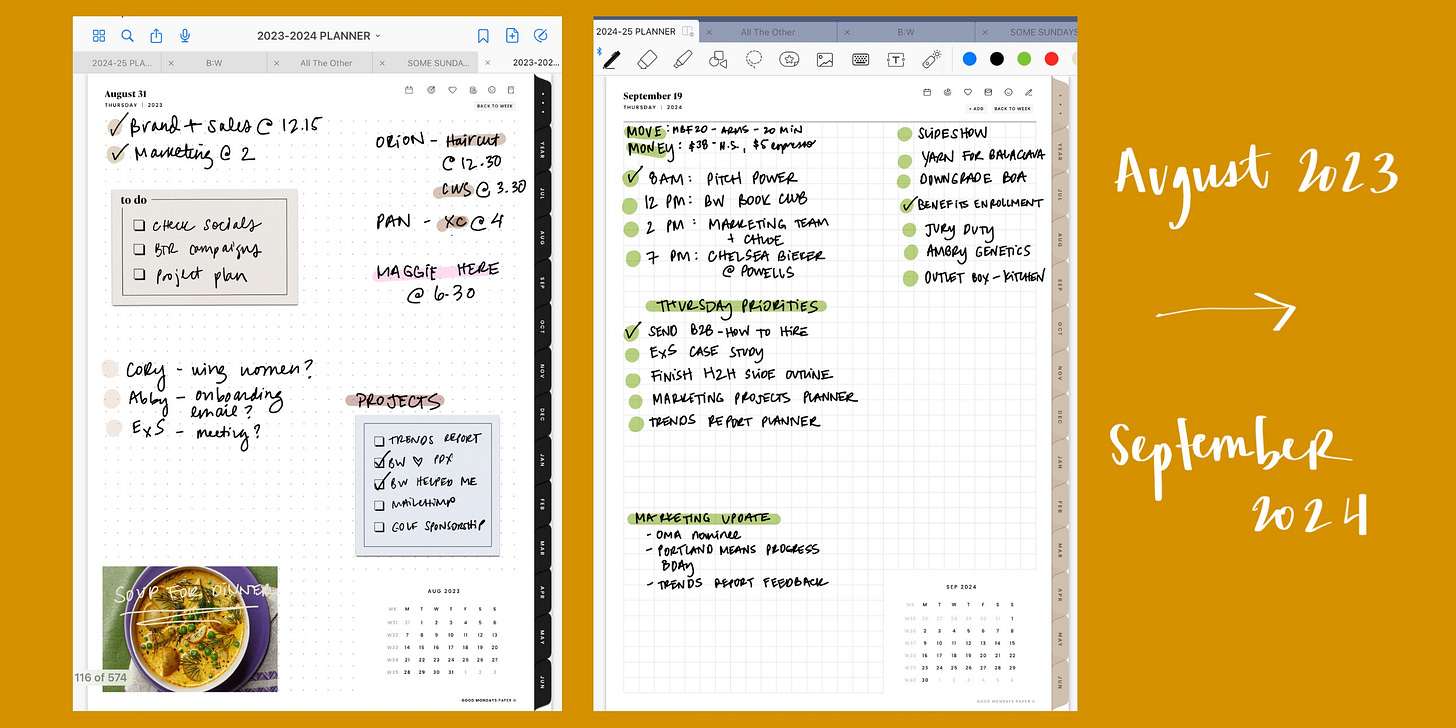 2023-2024 PLANNER
2024-25 PLA...
B:W
All The Other
SOME SUNDA...
2023-202...
August 31
THURSDAY | 2023
BACK TO WEEK
Brand + Sales @ 12.15
Marketing @ 2
ORION - Haircut
@ 12.30
CWS @ 3.30
PAN - XC @ 4
MAGGIE HERE
@ 6.30
to do
CHECK SOCIALS
BTR campaigns
Project plan
CORY - wing women?
Abby - onboarding
email?
ExS - meeting?
PROJECTS
TRENDS REPORT
BW ♡ PDX
BW HELPED ME
MAILCHIMP
GOLF SPONSORSHIP
SOUP FOR DINNER
116 of 574
AUG 2023
WK M T W T F S S
W31 31 1 2 3 4 5 6
W32 7 8 9 10 11 12 13
W33 14 15 16 17 18 19 20
W34 21 22 23 24 25 26 27
W35 28 29 30 31 1 2 3
GOOD MONDAYS PAPER ©
YEAR
JUL
AUG
SEP
OCT
NOV
DEC
JAN
FEB
MAR
APR
MAY
JUN
2024-25 PLANNER
All The Other
B:W
SOME SUNDAYS
September 19
THURSDAY | 2024
+ ADD
BACK TO WEEK
MOVE: MBF20 - ARMS - 20 MIN
MONEY: $38 - H.S., $5 espresso
8AM: PITCH POWER
12 PM: BW BOOK CLUB
2 PM: MARKETING TEAM
+ CHLOE
7 PM: CHELSEA BIEKER
@ POWELLS
SLIDESHOW
YARN FOR BALACLAVA
DOWNGRADE BOA
BENEFITS ENROLLMENT
JURY DUTY
AMBRY GENETICS
OUTLET BOX - KITCHEN
THURSDAY PRIORITIES
SEND B2B - HOW TO HIRE
ExS CASE STUDY
FINISH H2H SLIDE OUTLINE
MARKETING PROJECTS PLANNER
TRENDS REPORT PLANNER
MARKETING UPDATE
- OMA nominee
- PORTLAND MEANS PROGRESS
BDAY
- TRENDS REPORT FEEDBACK
SEP 2024
WK M T W T F S S
1
2 3 4 5 6 7 8
9 10 11 12 13 14 15
16 17 18 19 20 21 22
23 24 25 26 27 28 29
30
GOOD MONDAYS PAPER ©
YEAR
JUL
AUG
SEP
OCT
NOV
DEC
JAN
FEB
MAR
APR
MAY
JUN
August 2023
September
2024